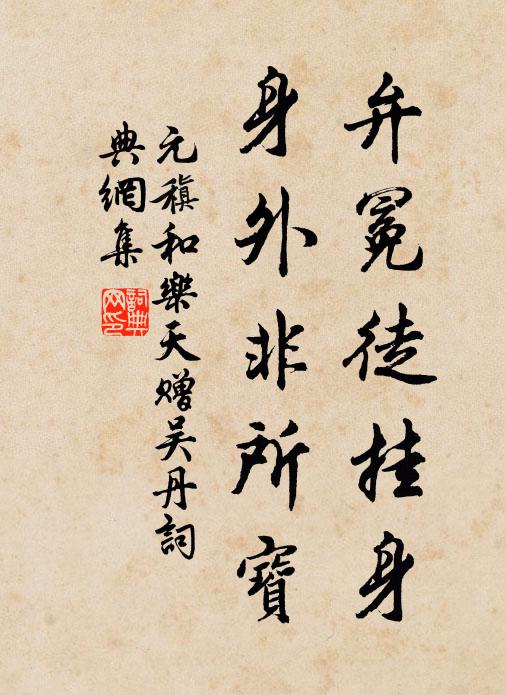 弁冕徒挂身
身外非所寶
元稹和樂天贈吴丹詞
典網集
詞典網印